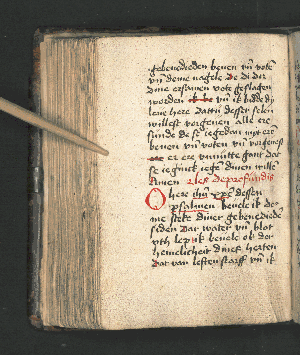 gebenedieden benen vn̄ vote
vn̄ dine nagele de di dor
dine ersamen vote geslagen
worden vn̄ ik bidde di
leue here dattu dessen selen
willest vorgeuen alle ere
sunde de se iegen
benen vn̄ voten vn̄ vorgeuest
er ere
se iegen dinen willē
Amen deprofundis
O here ihū xp̄e dessen
psalmen beuele ik dor
me steke diner gebenediede
siden dar water vn̄ blot
vth lep ik beuele ok dor
hemelicheit dines herten
dat van leften starff vn̄ ik